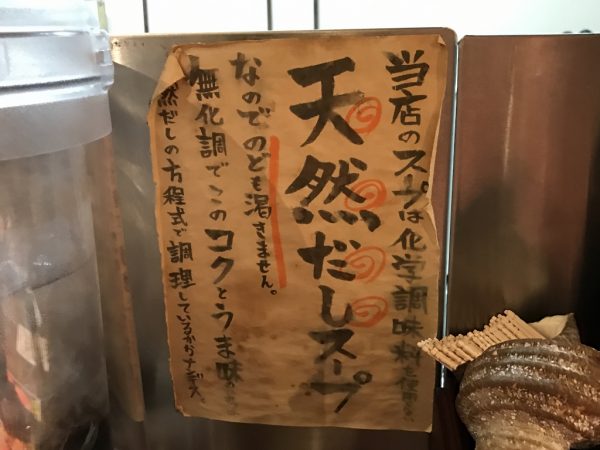 当店のスープは化学調味料を使用
天然だしスープ
なのでのども渇きません。
無化調でこのコクとうま味
然だしの方程式で調理しているからナノデス